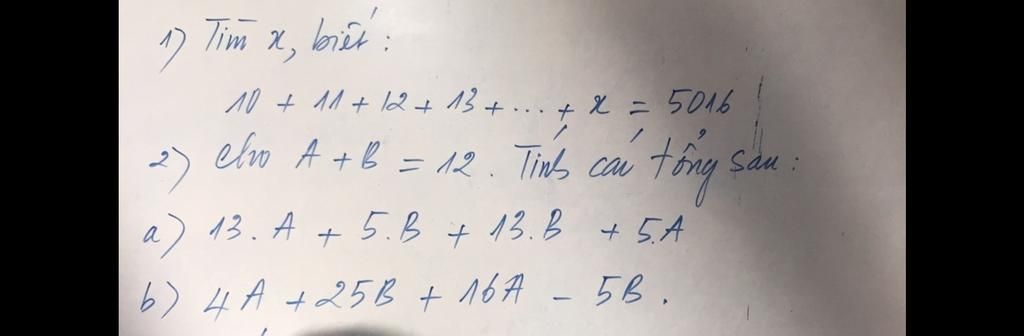 1) Tìm x, biết :
10 + 11 + 12 + 13 + ... + x = 5016
2) Cho A + B = 12 . Tính các tổng sau :
a) 13. A + 5. B + 13. B + 5. A
b) 4A + 25B + 16A - 5B .